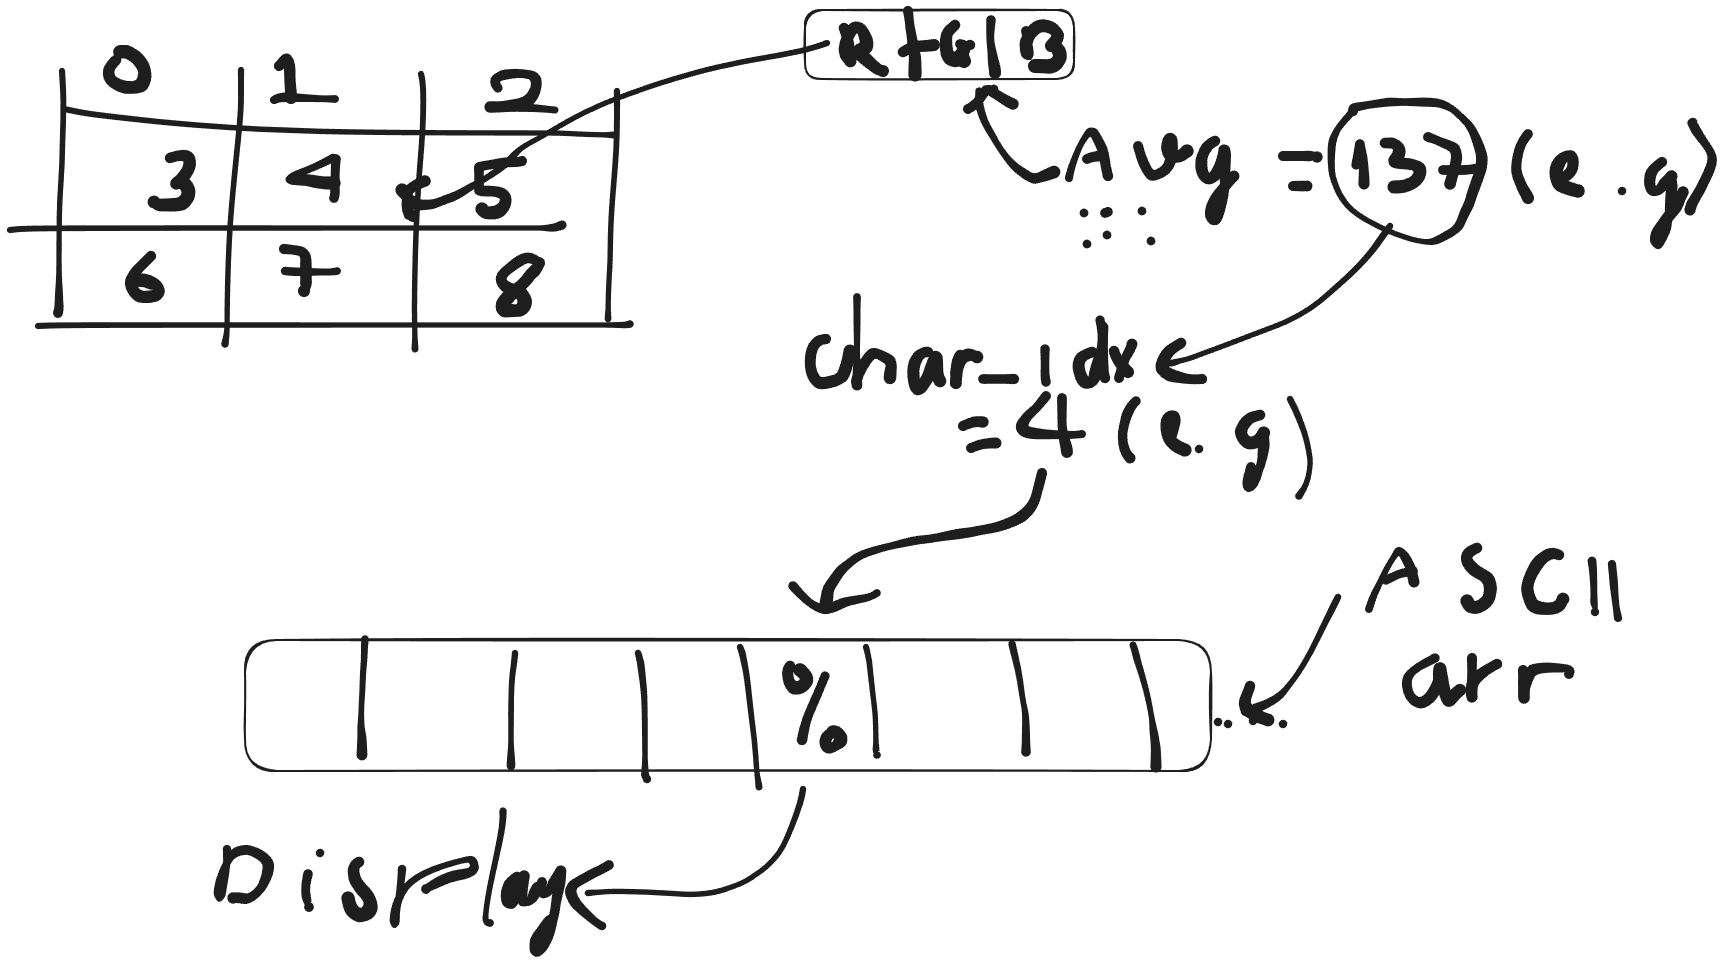 0 1 2
3 4 5
6 7 8
R|G|B
Avg = 137 (e.g)
char_idx
= 4 (e.g)
ASCII
arr
%
Display